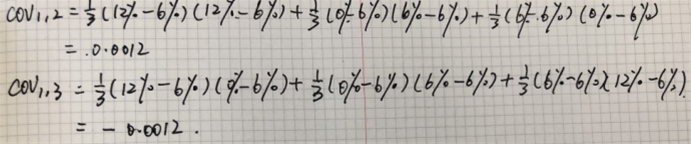 COV₁,₂ = 1/3 (12% - 6%) (12% - 6%) + 1/3 (0% - 6%) (6% - 6%) + 1/3 (6% - 6%) (0% - 6%)
= 0.0012
COV₁,₃ = 1/3 (12% - 6%) (0% - 6%) + 1/3 (0% - 6%) (6% - 6%) + 1/3 (6% - 6%) (12% - 6%)
= - 0.0012 .